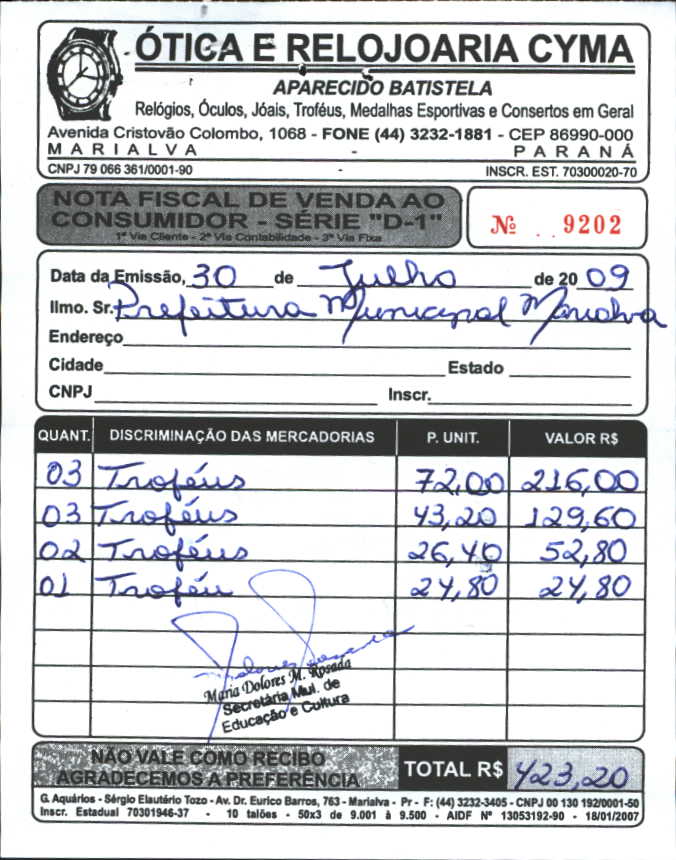 ÓTICA E RELOJOARIA CYMA
APARECIDO BATISTELA
Relógios, Óculos, Jóais, Troféus, Medalhas Esportivas e Consertos em Geral
Avenida Cristovão Colombo, 1068 - FONE (44) 3232-1881 - CEP 86990-000
MARIALVA - PARANÁ
CNPJ 79 066 361/0001-90 INSCR. EST. 70300020-70
NOTA FISCAL DE VENDA AO
CONSUMIDOR - SÉRIE "D-1"
1ª Via Cliente - 2ª Via Contabilidade - 3ª Via Fixa
Nº 9202
Data da Emissão, 30 de Julho de 2009
Ilmo. Sr. Prefeitura Municipal Marialva
Endereço
Cidade Estado
CNPJ Inscr.
QUANT. DISCRIMINAÇÃO DAS MERCADORIAS P. UNIT. VALOR R$
03 Troféus 72,00 216,00
03 Troféus 43,20 129,60
02 Troféus 26,40 52,80
01 Troféu 24,80 24,80
Maria Dolores M. Rosada
Secretária Mul. de
Educação e Cultura
NÃO VALE COMO RECIBO
AGRADECEMOS A PREFERÊNCIA
TOTAL R$ 423,20
G. Aquários - Sérgio Elautério Tozo - Av. Dr. Eurico Barros, 763 - Marialva - Pr - F: (44) 3232-3405 - CNPJ 00 130 192/0001-50
Inscr. Estadual 70301946-37 - 10 talões - 50x3 de 9.001 à 9.500 - AIDF Nº 13053192-90 - 18/01/2007